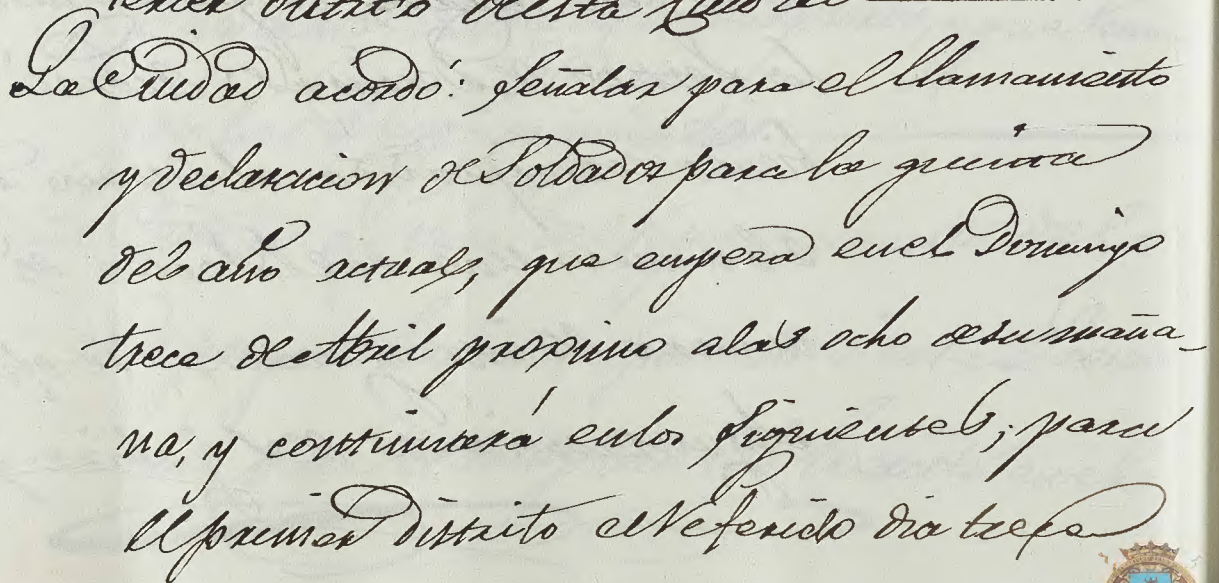 tercer distrito desta Ciudad
La Ciudad acordó: señalar para el llamamiento
y declaracion de Soldados para la quinta
del año actual, que empezará en el Domingo
trece de Abril proximo a las ocho de su maña-
na, y continuará en los siguientes; para
el primer distrito el referido dia trece